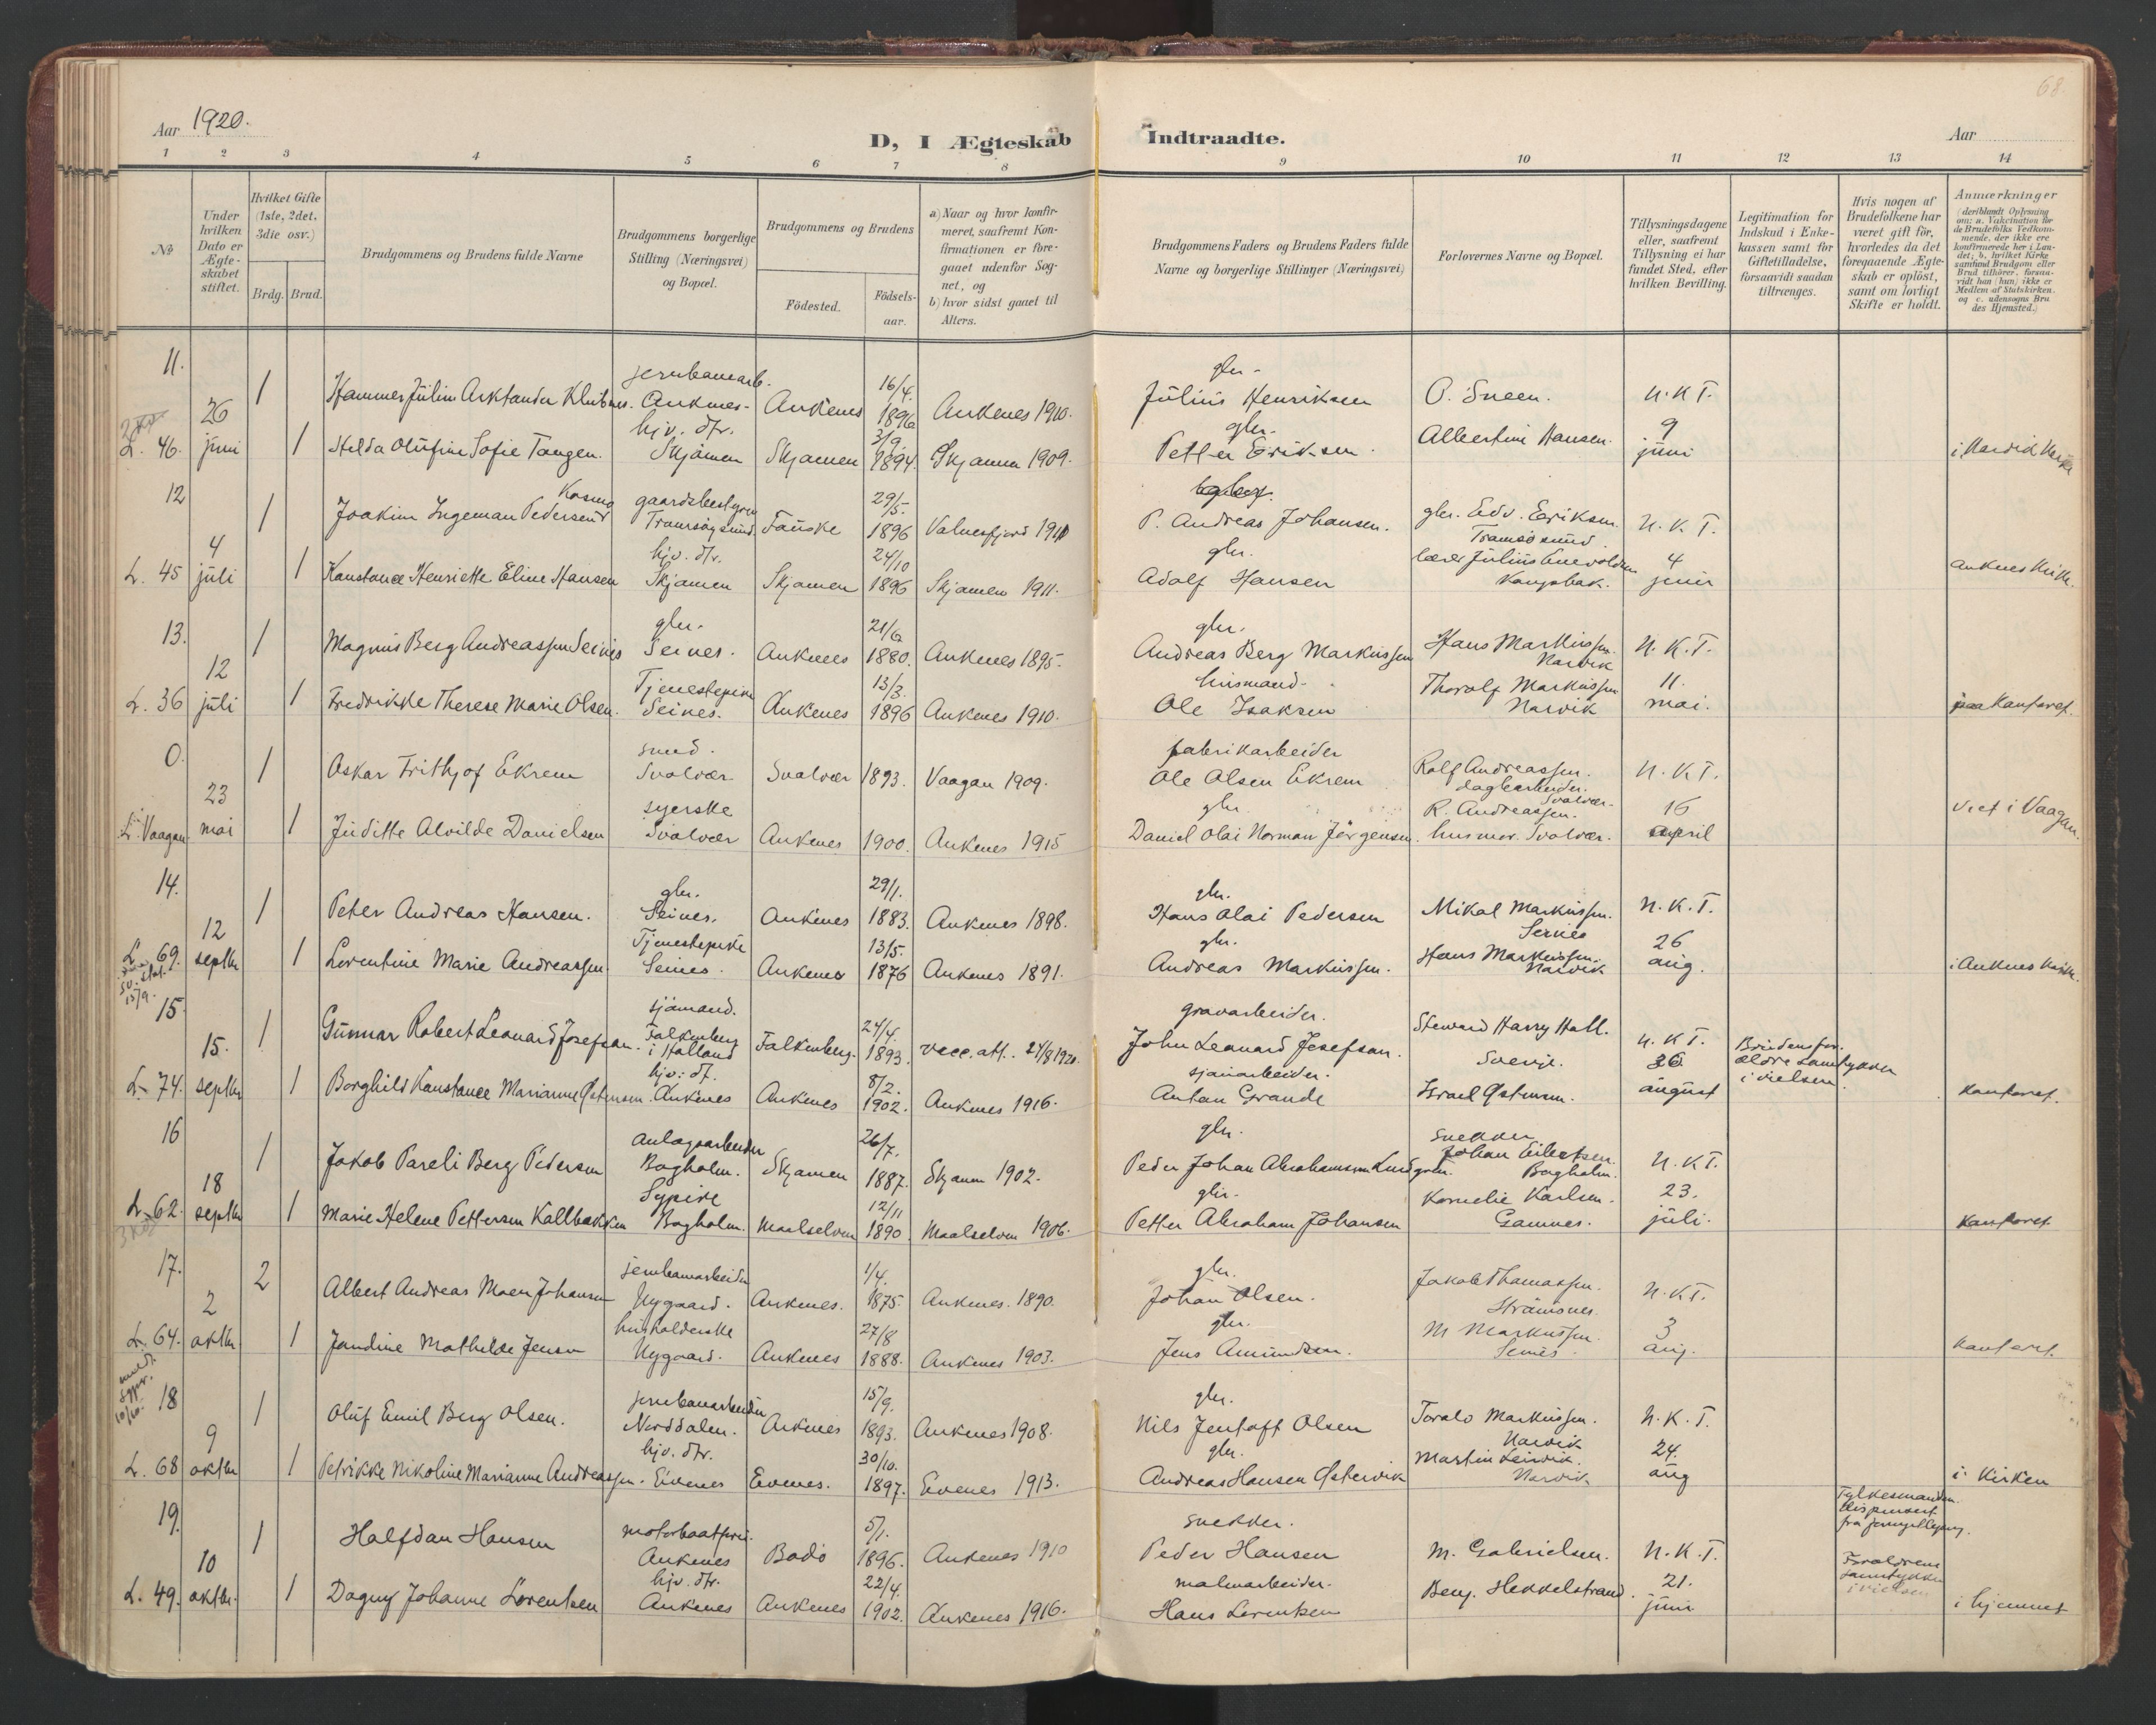 68
Aar 1920.
D, I Ægteskab Indtraadte.
Aar
1 2 3 4 5 6 7 8 9 10 11 12 13 14
№
Under hvilken Dato er Ægte-skabet stiftet.
Hvilket Gifte (1ste, 2det, 3die osv.)
Brdg. Brud.
Brudgommens og Brudens fulde Navne
Brudgommens borgerlige Stilling (Næringsvei) og Bopæl.
Brudgommens og Brudens
Födested.
Födsels-aar.
a) Naar og hvor konfir-meret, saafremt Kon-firmationen er fore-gaaet udenfor Sog-net, og
b) hvor sidst gaaet til Alters.
Brudgommens Faders og Brudens Faders fulde Navne og borgerlige Stillinger (Næringsvei)
Forlovernes Navne og Bopæl.
Tillysningsdagene eller, saafremt Tillysning ei har fundet Sted, efter hvilken Bevilling.
Legitimation for Indskud i Enke-kassen samt for Giftetilladelse, forsaavidt saadan tiltrænges.
Hvis nogen af Brudefolkene har været gift før, hvorledes da det foregaaende Ægte-skab er oplöst, samt om lovligt Skifte er holdt.
Anmærkninger (deriblandt Oplysning om: a. Vakcination for de Brudefolks Vedkom-mende, der ikke ere konfirmerede her i Lan-det; b. hvilket Kirke-samfund Brudgom eller Brud tilhörer, forsaa-vidt han (hun) ikke er Medlem af Statskirken, og c. udensogns Bru-des Hjemsted.)
11. 1 Hammer Julius Arktander Klubnes. jernbanearb. Ankenes- Ankenes 16/4. 1896 Ankenes 1910. gbr- Julius Henriksen O. Sneen. N.K.T.
L. 46. 26 juni 1 Helda Olufine Sofie Tangen. hjv. dtr. Skjomen Skjomen 3/9. 1894. Skjomen 1909. gbr. Petter Eriksen. Albertine Hansen. 9 juni i Narvik Kirke
12 1 Joakim Ingeman Pedersen Kosmo gaardsbestyrer Tromsøysund Fauske 29/5. 1896 Valnesfjord 1911 P. Andreas Johansen. gbr. Edv. Eriksen. Tromsösund N.K.T.
L. 45 4 juli 1 Konstance Henriette Eline Hansen hjv. dtr. Skjomen Skjomen 24/10 1896 Skjomen 1911. gbr. Adolf Hansen lærer Julius Enevoldsen Kongsbak. 4 juni Ankenes Kirke.
13. 1 Magnus Berg Andreassen Seines gbr. Seines. Ankenes 21/6 1880. Ankenes 1895. gbr. Andreas Berg Markussen Hans Markussen. Narvik N.K.T.
L. 36 12 juli 1 Fredrikke Therese Marie Olsen. Tjenestepike Seines. Ankenes 13/3. 1896 Ankenes 1910. husmand. Ole Isaksen Thoralf Markussen Narvik 11. mai. paa Kontoret.
0. 1 Oskar Frithjof Ekrem smed. Svolvær Svolvær 1893. Vaagan 1909. fabrikarbeider Ole Olsen Ekrem Rolf Andreassen. dagarbeider. Svolvær. N.K.T.
L. Vaagan 23 mai 1 Juditte Alvilde Danielsen syerske Svolvær Ankenes 1900. Ankenes 1915 gbr Daniel Olai Norman Jörgensen. R. Andreassen. husmor. Svolvær. 16 april viet i Vaagan.
14. 1 Peter Andreas Hansen. gbr. Seines. Ankenes 29/1. 1883. Ankenes 1898. gbr. Hans Olai Pedersen Mikal Markussen. Seines N.K.T.
L. 69. 12 septbr 1 Lorentine Marie Andreassen Tjenestepike Seines. Ankenes 13/5. 1876 Ankenes 1891. gbr. Andreas Markussen. Hans Markussen. Narvik 26 aug. i Ankenes Kirke.
sv. stat. 15/9.
15. 1 Gunnar Robert Leonard Josefson. sjömand. Falkenberg i Halland Falkenberg. 24/4. 1893. vacc. att. 24/8 1920. gravarbeider. John Leonard Josefsan. Steward Harry Hall. Sverje. N.K.T. Brudens for. ældre samtykker i vielsen.
L. 74. 15. septbr 1 Borghild Konstance Marianne Østensen. hjv. dt. Ankenes Ankenes 8/2. 1902. Ankenes 1916. sjauarbeider. Anton Grande Israel Østensen. 26 august Kontoret.
16 1 Jakob Pareli Berg Pedersen anlægsarbeider Bogholm. Skjomen 26/7. 1887. Skjomen 1902. gbr. Peder Johan Abrahamsen Lundgren. snekker Johan Eilertsen Bogholm. N.K.T.
L. 62. 18 septbr 1 Marie Helene Pettersen Kallbakken Sypike Bogholm. Maalselven 12/11 1890. Maalselven 1906. gbr. Petter Abraham Johansen Kornelie Karlsen. Gamnes. 23. juli. Kontoret.
17. 2 Albert Andreas Moen Johansen jernbanearbeider Nygaard. Ankenes. 1/4. 1875. Ankenes. 1890. gbr. Johan Olsen. Jakob Thomassen. Strömsnes. N.K.T.
L. 64. 2 oktbr 1 Jandine Mathilde Jensen husholderske Nygaard. Ankenes 27/8 1888. Ankenes 1903. gbr. Jens Amundsen. M Markussen. Seines. 3 aug. Kontoret.
10/10.
18 1 Oluf Emil Berg Olsen. jernbanearbeider Norddalen. Ankenes 15/9. 1893. Ankenes 1908. gbr. Nils Jentoft Olsen Toralv Markussen. Narvik N.K.T.
L. 68 9 oktbr 1 Petrikke Nikoline Marianne Andreassen. hjv. dtr. Evenes Evenes. 30/10. 1897. Evenes 1913. gbr. Andreas Hansen Østervik Martin Leirvik. Narvik 24. aug i Kirken
19. 1 Halfdan Hansen motorbaatfører. Ankenes Bodö 5/1. 1896. Ankenes 1910 snekker. Peder Hansen M. Gabrielsen. N.K.T. Fylkesmanden dispensert fra
L. 49. 10 oktbr. 1 Dagny Johanne Lorentzen hjv. dtr. Ankenes Ankenes 22/4. 1902. Ankenes 1916. malmarbeider. Hans Lorentzen Benj. Hekkelstrand. 21. juni Forældrene samtykker i vielsen i hjemmet